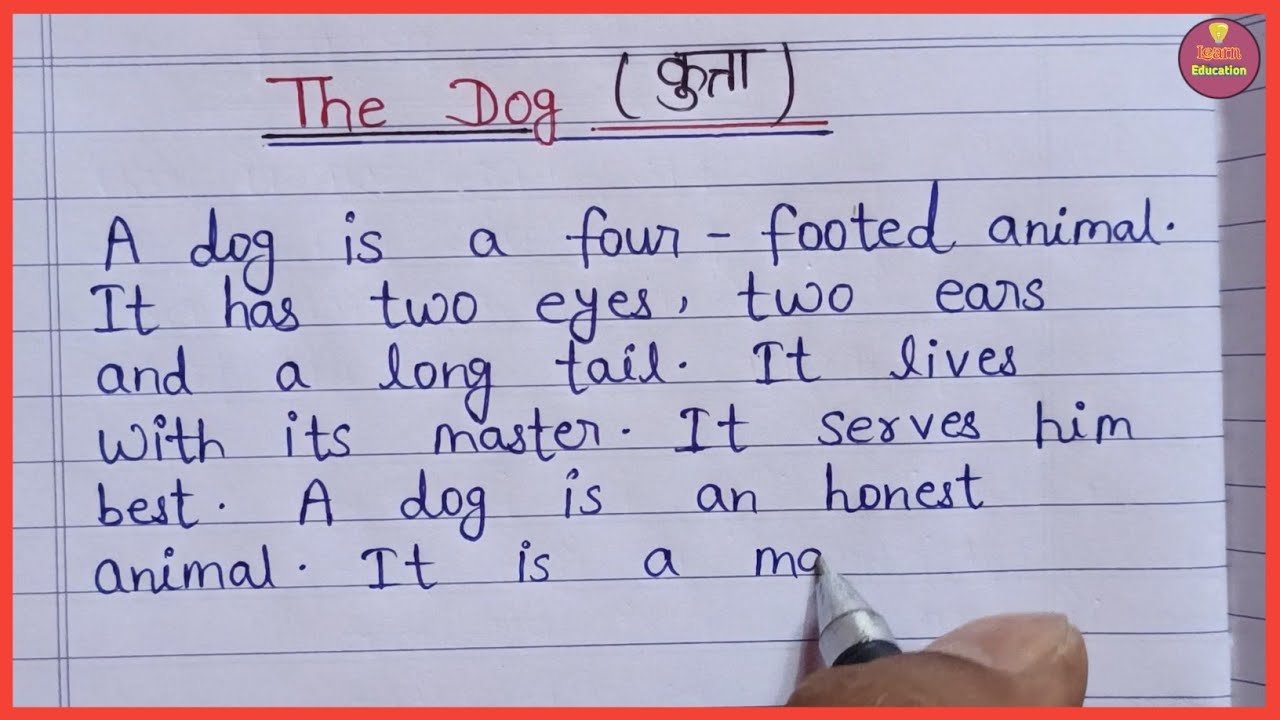 The Dog (कुत्ता)
Learn
Education
A dog is a four-footed animal.
It has two eyes, two ears
and a long tail. It lives
with its master. It serves him
best. A dog is an honest
animal. It is a ma